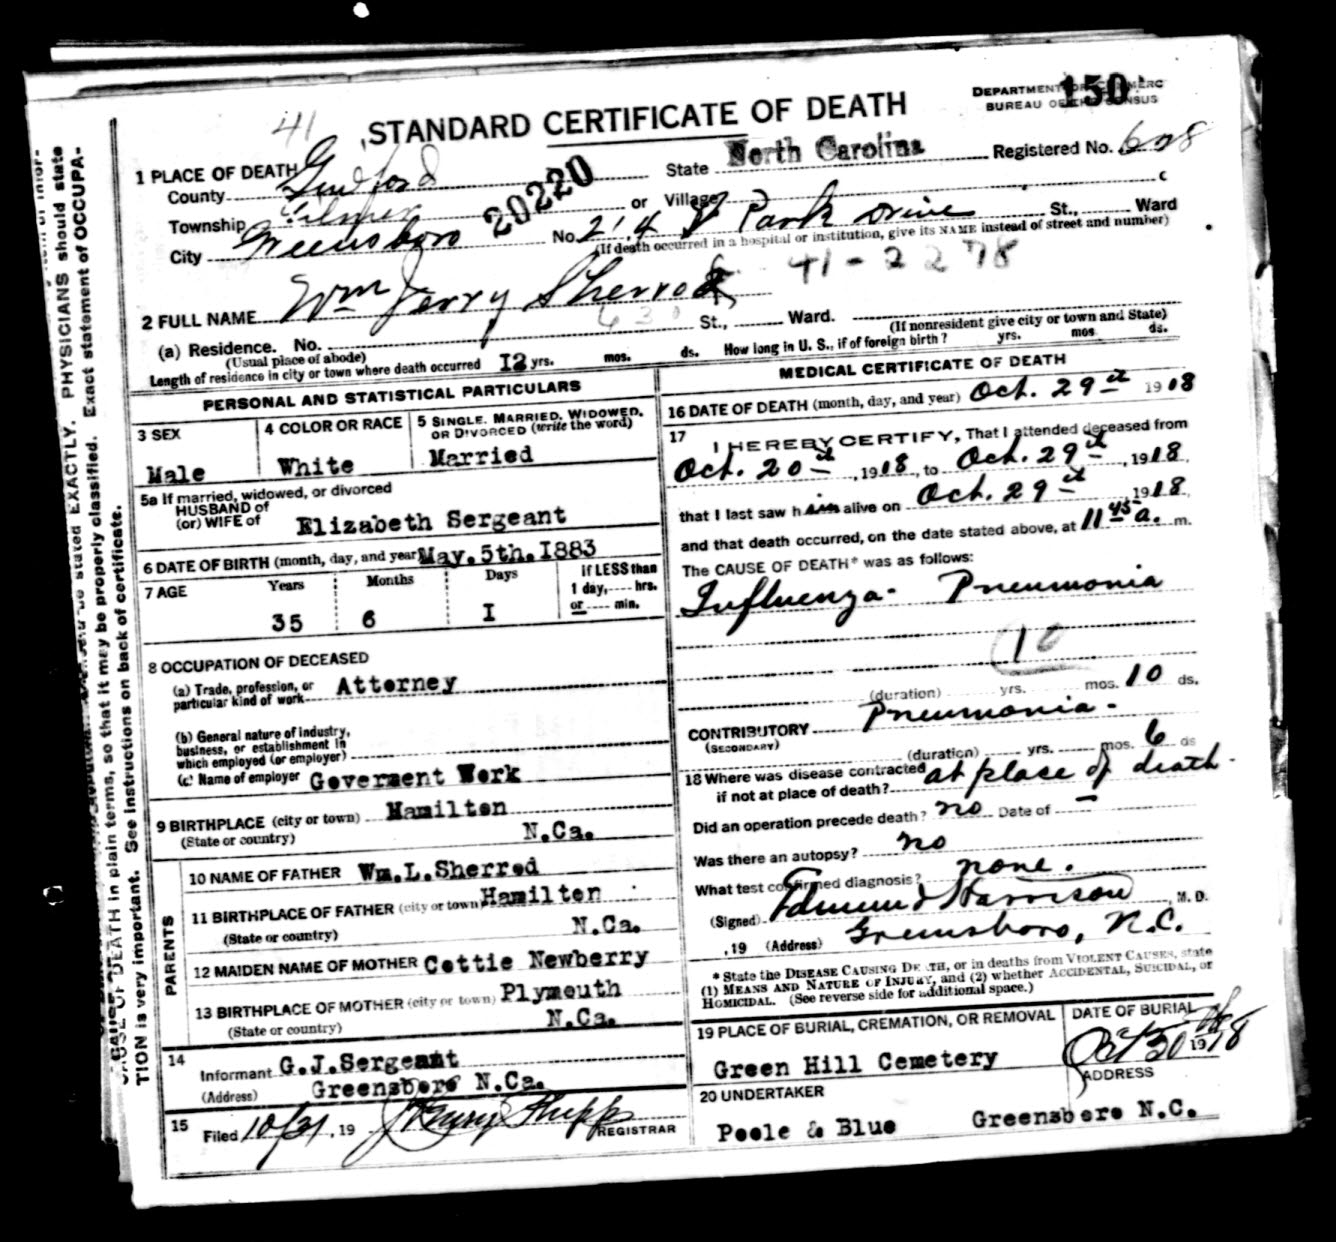 150
DEPARTMENT OF COMMERC
BUREAU OF THE CENSUS
41
STANDARD CERTIFICATE OF DEATH
1 PLACE OF DEATH
County Guilford State North Carolina Registered No. 628
Township Gilmer or Village
20220
City Greensboro No. 214 Park Drive St., Ward
(If death occurred in a hospital or institution, give its NAME instead of street and number)
41-2278
2 FULL NAME Wm Jerry Sherrod
(a) Residence. No. St., Ward.
(Usual place of abode) (If nonresident give city or town and State)
Length of residence in city or town where death occurred 12 yrs. mos. ds. How long in U. S., if of foreign birth? yrs. mos. ds.
PERSONAL AND STATISTICAL PARTICULARS
3 SEX
Male
4 COLOR OR RACE
White
5 SINGLE, MARRIED, WIDOWED,
OR DIVORCED (write the word)
Married
5a If married, widowed, or divorced
HUSBAND of
(or) WIFE of Elizabeth Sergeant
6 DATE OF BIRTH (month, day, and year May. 5th. 1883
7 AGE Years Months Days If LESS than
1 day, hrs.
or min.
35 6 I
8 OCCUPATION OF DECEASED
(a) Trade, profession, or
particular kind of work Attorney
(b) General nature of industry,
business, or establishment in
which employed (or employer)
(c) Name of employer Goverment Work
9 BIRTHPLACE (city or town) Hamilton
(State or country) N.Ca.
PARENTS
10 NAME OF FATHER Wm.L.Sherred
11 BIRTHPLACE OF FATHER (city or town) Hamilton
(State or country) N.Ca.
12 MAIDEN NAME OF MOTHER Cottie Newberry
13 BIRTHPLACE OF MOTHER (city or town) Plymouth
(State or country) N.Ca.
14
Informant G.J.Sergeant
(Address) Greensboro N.Ca.
15
Filed 10/31, 19 REGISTRAR
MEDICAL CERTIFICATE OF DEATH
16 DATE OF DEATH (month, day, and year) Oct. 29th 1918
17 I HEREBY CERTIFY, That I attended deceased from
Oct. 20th, 1918, to Oct. 29th, 1918,
that I last saw him alive on Oct. 29th 1918,
and that death occurred, on the date stated above, at 11 45 a. m.
The CAUSE OF DEATH* was as follows:
Influenza - Pneumonia
10
(duration) yrs. mos. 10 ds.
CONTRIBUTORY Pneumonia.
(SECONDARY)
(duration) yrs. mos. 6 ds
18 Where was disease contracted
if not at place of death? at place of death.
Did an operation precede death? no Date of
Was there an autopsy? no
What test confirmed diagnosis? none.
(Signed) Edmund Harrison, M. D.
, 19 (Address) Greensboro, N.C.
* State the DISEASE CAUSING DEATH, or in deaths from VIOLENT CAUSES, state
(1) MEANS AND NATURE OF INJURY, and (2) whether ACCIDENTAL, SUICIDAL, or
HOMICIDAL. (See reverse side for additional space.)
19 PLACE OF BURIAL, CREMATION, OR REMOVAL
Green Hill Cemetery
DATE OF BURIAL
Oct 30 1918
20 UNDERTAKER
Poole & Blue
ADDRESS
Greensboro N.C.
stated EXACTLY. PHYSICIANS should state
CAUSE OF DEATH in plain terms, so that it may be properly classified. Exact statement of OCCUPA-
TION is very important. See instructions on back of certificate.